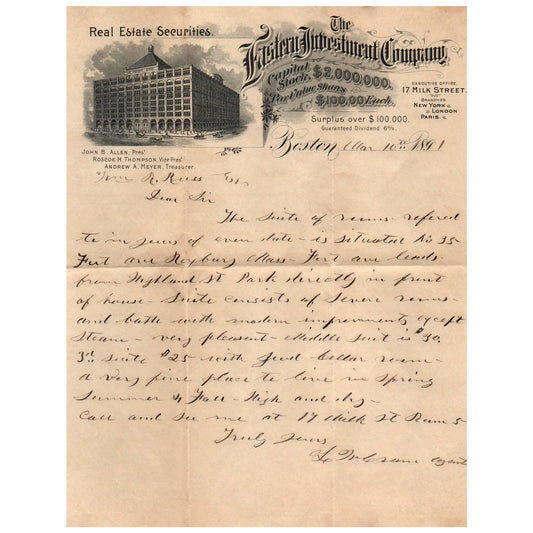 Real Estate Securities.
The
Eastern Investment Company,
Capital
Stock, $2,000,000.
Par Value Shares
$100.00 Each.
Surplus over $100,000.
Guaranteed Dividend 6%.
EXECUTIVE OFFICE,
17 MILK STREET.
BRANCHES
NEW YORK &
LONDON
PARIS.
JOHN B. ALLEN, Pres't
ROSCOE H. THOMPSON, Vice Pres't
ANDREW A. MEYER, Treasurer.
Boston Mar 10th 1891
R. Russ Esq
Dear Sir
The suite of rooms refered
to in yours of even date - is situated No 35
Fort ave Roxbury Mass - Fort ave leads
from Highland St Park directly in front
of house - Suite consists of Seven rooms -
and bath with modern improvments except
Steam - very pleasant - Middle Suit is $30,
3rd suite $25 with good Cellar room -
a very fine place to live in Spring
Summer & Fall - High and dry -
Call and see me at 17 Milk St Room 5
Truly yours
agent